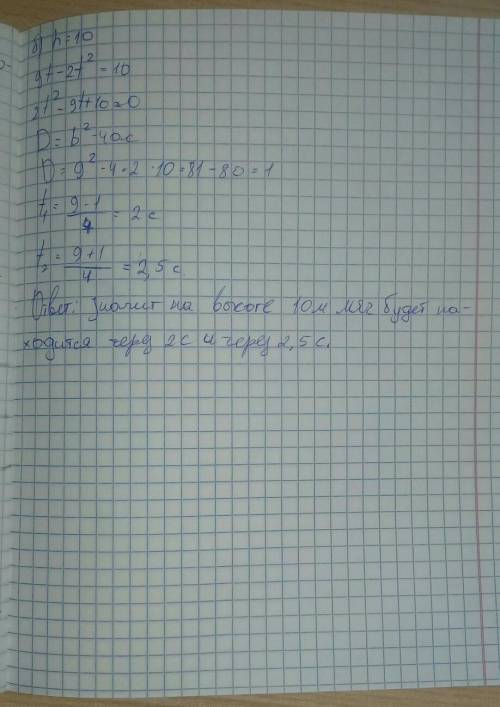 б) h=10
9t-2t²=10
2t²-9t+10=0
D=b²-4ac
D=9²-4·2·10=81-80=1
t₁=(9-1)/4=2c
t₂=(9+1)/4=2,5c.
Ответ: значит на высоте 10м мяч будет на-
ходится через 2с и через 2,5с.